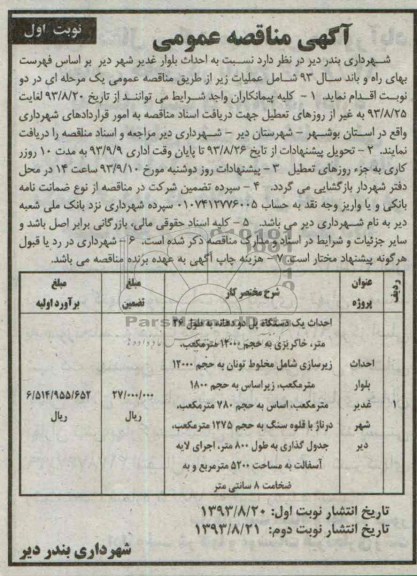 نوبت اول
آگهی مناقصه عمومی
شهرداری بندر دیر در نظر دارد نسبت به احداث بلوار غدیر شهر دیر بر اساس فهرست
بهای راه و باند سال ۹۳ شامل عملیات زیر از طریق مناقصه عمومی یک مرحله ای در دو
نوبت اقدام نماید ۱ - کلیه پیمانکاران واجد شرایط می توانند از تاریخ ۹۳/۸/۲۰ لغایت
۹۳/۸/۲۵ به غیر از روزهای تعطیل جهت دریافت اسناد مناقصه به امور قراردادهای شهرداری
واقع در استان بوشهر - شهرستان دیر - شهرداری دیر مراجعه و اسناد مناقصه را دریافت
نمایند. ۲ - تحویل پیشنهادات از تایخ ۹۳/۸/۲۶ تا پایان وقت اداری ۹۳/۹/۹ به مدت ۱۰ روزر
کاری به جزء روزهای تعطیل ۳ - پیشنهادات روز دوشنبه مورخ ۹۳/۹/۱۰ ساعت ۱۴ در محل
دفتر شهردار بازگشایی می گردد. ۴ - سپرده تضمین شرکت در مناقصه از نوع ضمانت نامه
بانکی و یا واریز وجه نقد به حساب ۰۱۰۷۴۱۳۷۷۶۰۰۵ سپرده شهرداری نزد بانک ملی شعبه
دیر به نام شهرداری دیر می باشد. ۵ - کلیه اسناد حقوقی مالی، بازرگانی برابر اصل باشد و
سایر جزئیات و شرایط در اسناد و مدارک مناقصه ذکر شده است. ۶ - شهرداری در رد یا قبول
هرگونه پیشنهاد مختار است. ۷ - هزینه چاپ آگهی به عهده برنده مناقصه می باشد.
ردیف | عنوان پروژه | شرح مختصر کار | مبلغ تضمین | مبلغ برآورد اولیه
۱ | احداث بلوار غدیر شهر دیر | احداث یک دستگاه پل دو دهانه به طول ۲۶
متر، خاکریزی به حجم ۱۲۰۰۰ مترمکعب،
زیرسازی شامل مخلوط تونان به حجم ۱۲۰۰۰
مترمکعب، زیراساس به حجم ۱۸۰۰
مترمکعب، اساس به حجم ۷۸۰ مترمکعب،
درناژ با قلوه سنگ به حجم ۱۲۷۵ مترمکعب،
جدول گذاری به طول ۸۰۰ متر، اجرای لایه
آسفالت به مساحت ۵۲۰۰ مترمربع و به
ضخامت ۸ سانتی متر | ۲۷/۰۰۰/۰۰۰ ریال | ۶/۵۱۴/۹۵۵/۶۵۲ ریال
تاریخ انتشار نوبت اول: ۱۳۹۳/۸/۲۰
تاریخ انتشار نوبت دوم: ۱۳۹۳/۸/۲۱
شهرداری بندر دیر